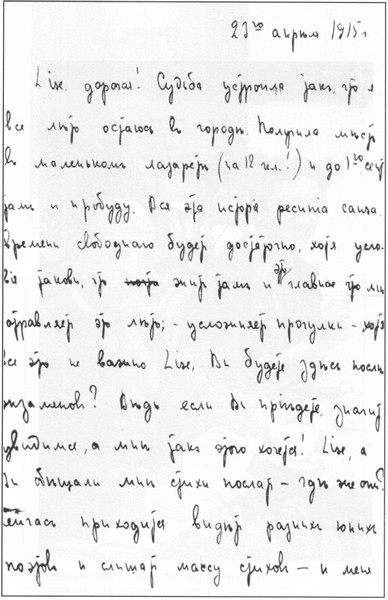 23го апреля 1915г
Lise, дорогая! Судьба устроила такъ, что я
все лѣто остаюсь въ городѣ. Получила мѣсто
въ маленькомъ лазаретѣ (на 12 чел.!) и до 1го сент
тамъ и пробуду. Вся эта исторiя решила сама.
времени свободнаго будетъ достаточно, хотя усло-
вiя таковы, что жить тамъ и это главное что мнѣ
отравляетъ это лѣто; - усложняетъ прогулки - хотя
все это не важно Lise, Вы будете здѣсь послѣ
экзаменовъ? Вѣдь если Вы прiѣдете, значитъ
увидимся, а мнѣ такъ этого хочется! Lise, а
Вы обѣщали мнѣ стихи послать - гдѣ же они?
сейчасъ приходится видѣть разныхъ юныхъ
поэтовъ и слышать массу стиховъ - и меня